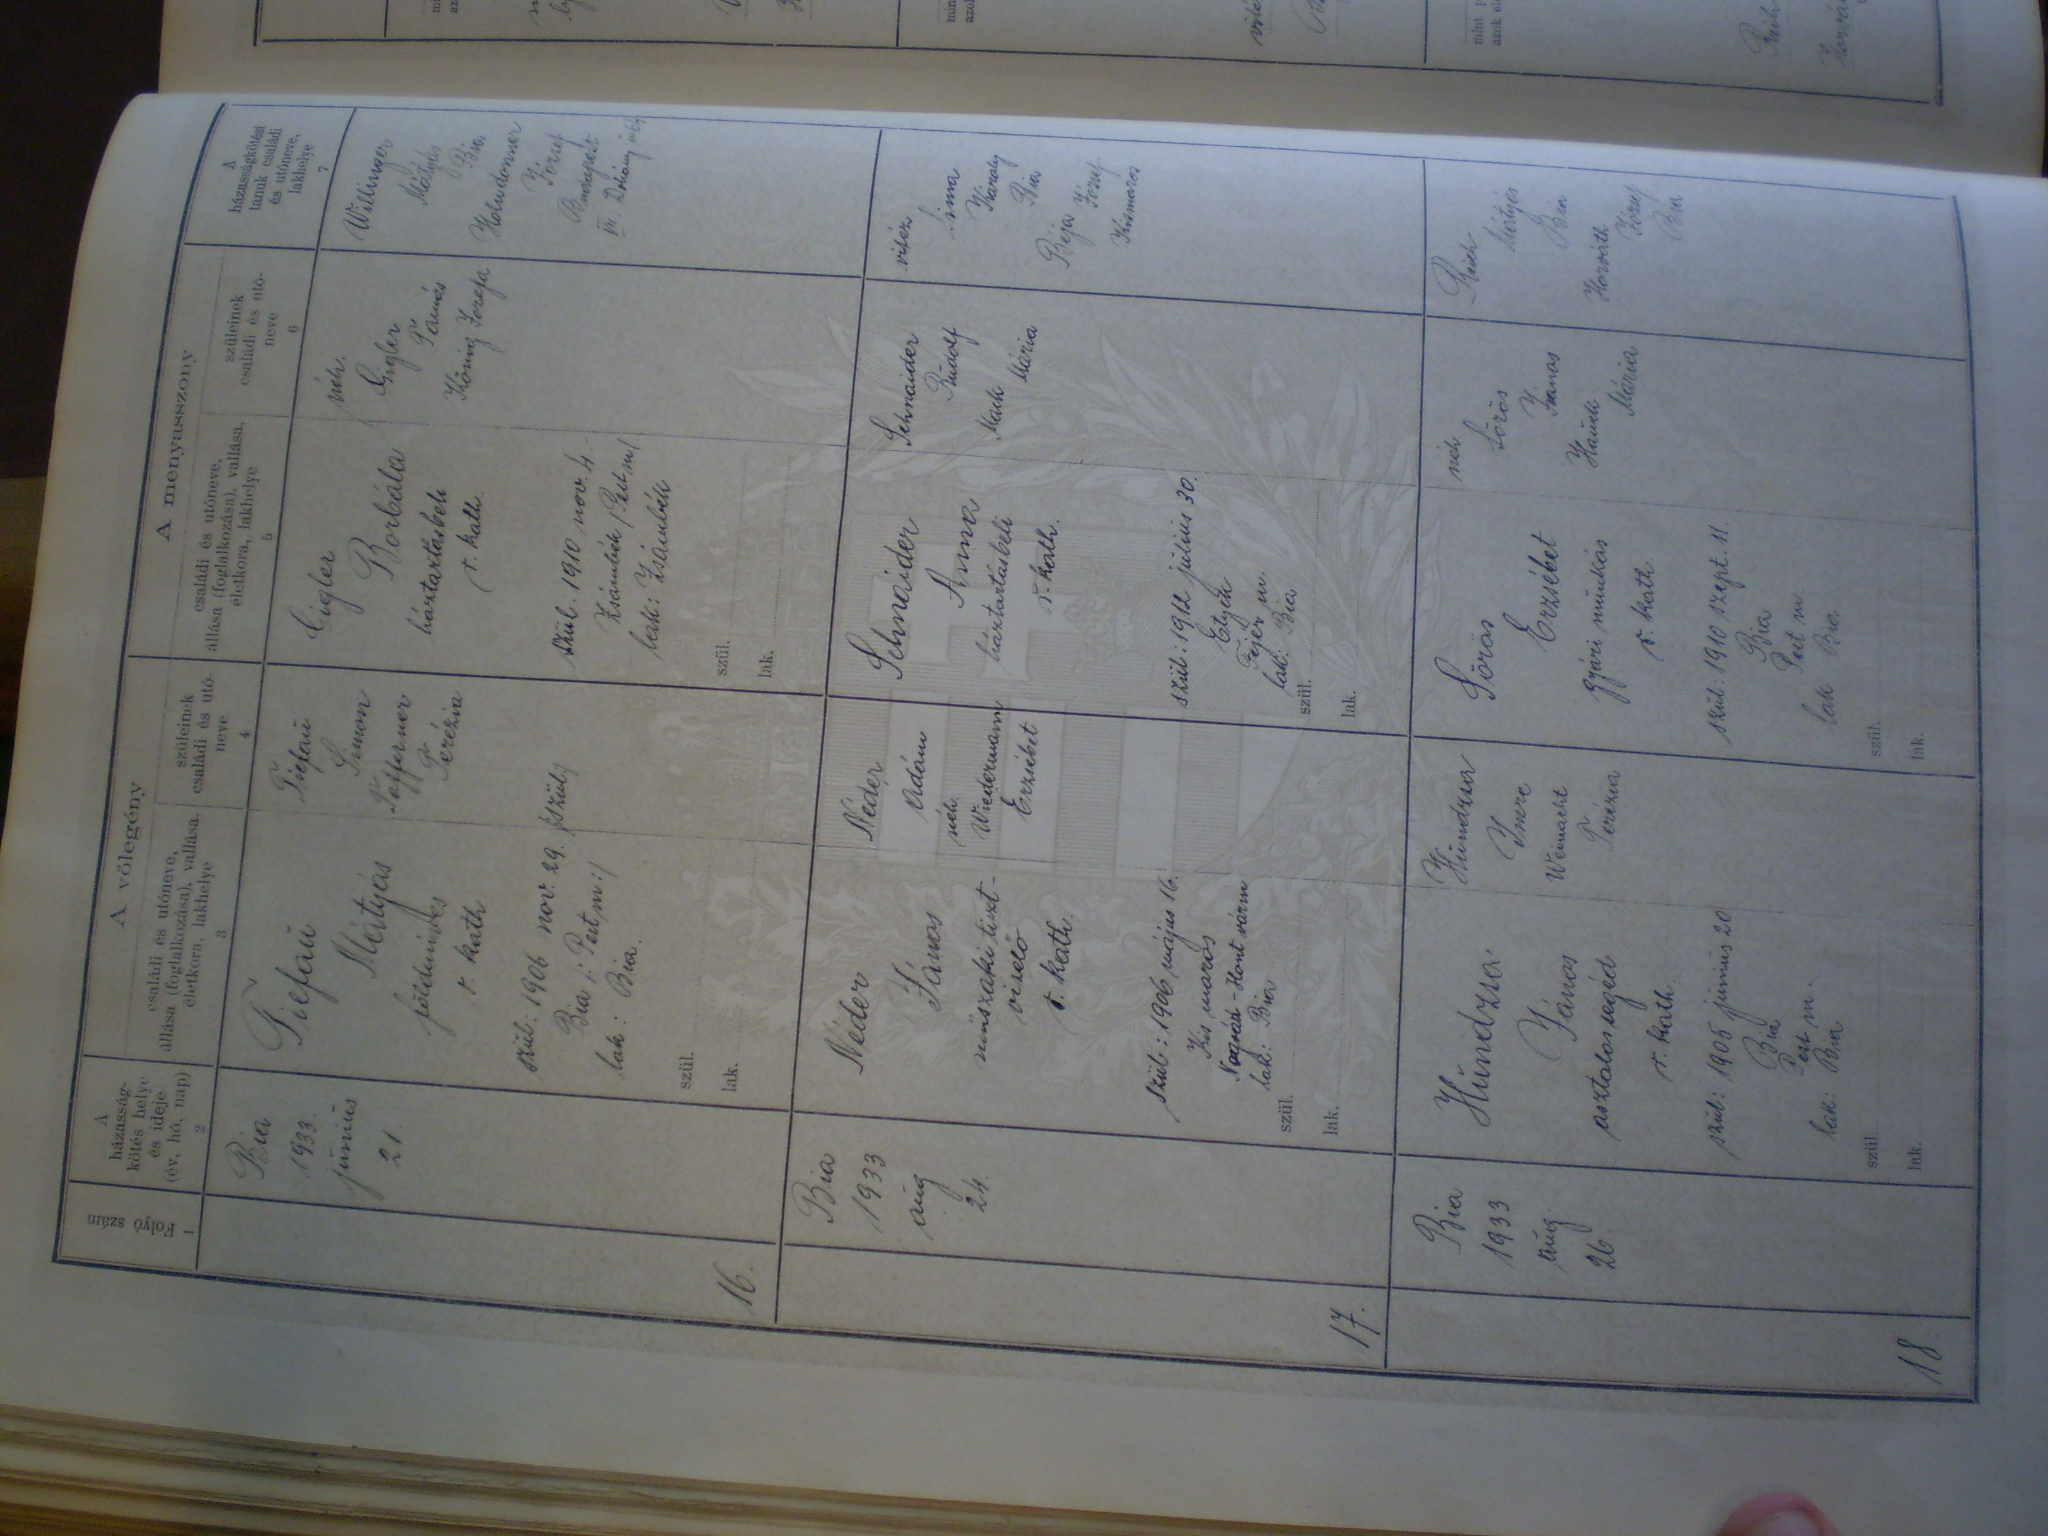 A vőlegény
A menyasszony
Folyó szám
1
A
házasság-
kötés helye
és ideje
(év, hó, nap)
2
családi és utóneve,
állása (foglalkozása), vallása,
életkora, lakhelye
3
szüleinek
családi és utó-
neve
4
családi és utóneve,
állása (foglalkozása), vallása,
életkora, lakhelye
5
szüleinek
családi és utó-
neve
6
A
házasságkötési
tanuk családi
és utóneve,
lakhelye
7
16.
Bia
1933.
június
21.
Tiefaü
Mátyás
földmíves
r. kath.
szül: 1906 nov. 29.
Bia /: Pest m :/
lak: Bia.
szül.
lak.
Tiefaü
Simon
Terézia
Gigler
Borbála
háztartásbeli
r. kath.
szül: 1910 nov. 4.
Zsámbék /Pest m/
lak: Zsámbék
szül.
lak.
néh.
Gigler
Tamás
König Jozefa
Willinger
Mátyás
Bia
József
Budapest
17.
Bia
1933
aug
24.
Néder
János
műszaki tiszt-
viselő
r. kath.
szül: 1906 május 16.
Kis maros
Nógrád-Hont várm
lak: Bia
szül.
lak.
Neder
Ádám
néh.
Wiedermann
Erzsébet
Schnaider
Anna
háztartásbeli
r. kath.
szül: 1912 július 30.
Etyek
Fejér m.
lak: Bia
szül.
lak.
Schnaider
Rudolf
Mack Mária
vitéz
Sima
Károly
Bia
József
Kismaros
18.
Bia
1933
aug.
26.
János
asztalossegéd
r. kath.
szül: 1905 június 20
Bia
Pest m.
lak: Bia
szül.
lak.
Imre
Terézia
Sörös
Erzsébet
gyári munkás
r. kath
szül: 1910 szept. 11.
Bia
Pest m
lak Bia
szül.
lak.
néh
Sörös
János
Hauck
Mária
Mátyás
Bia
Horváth
József
Bia